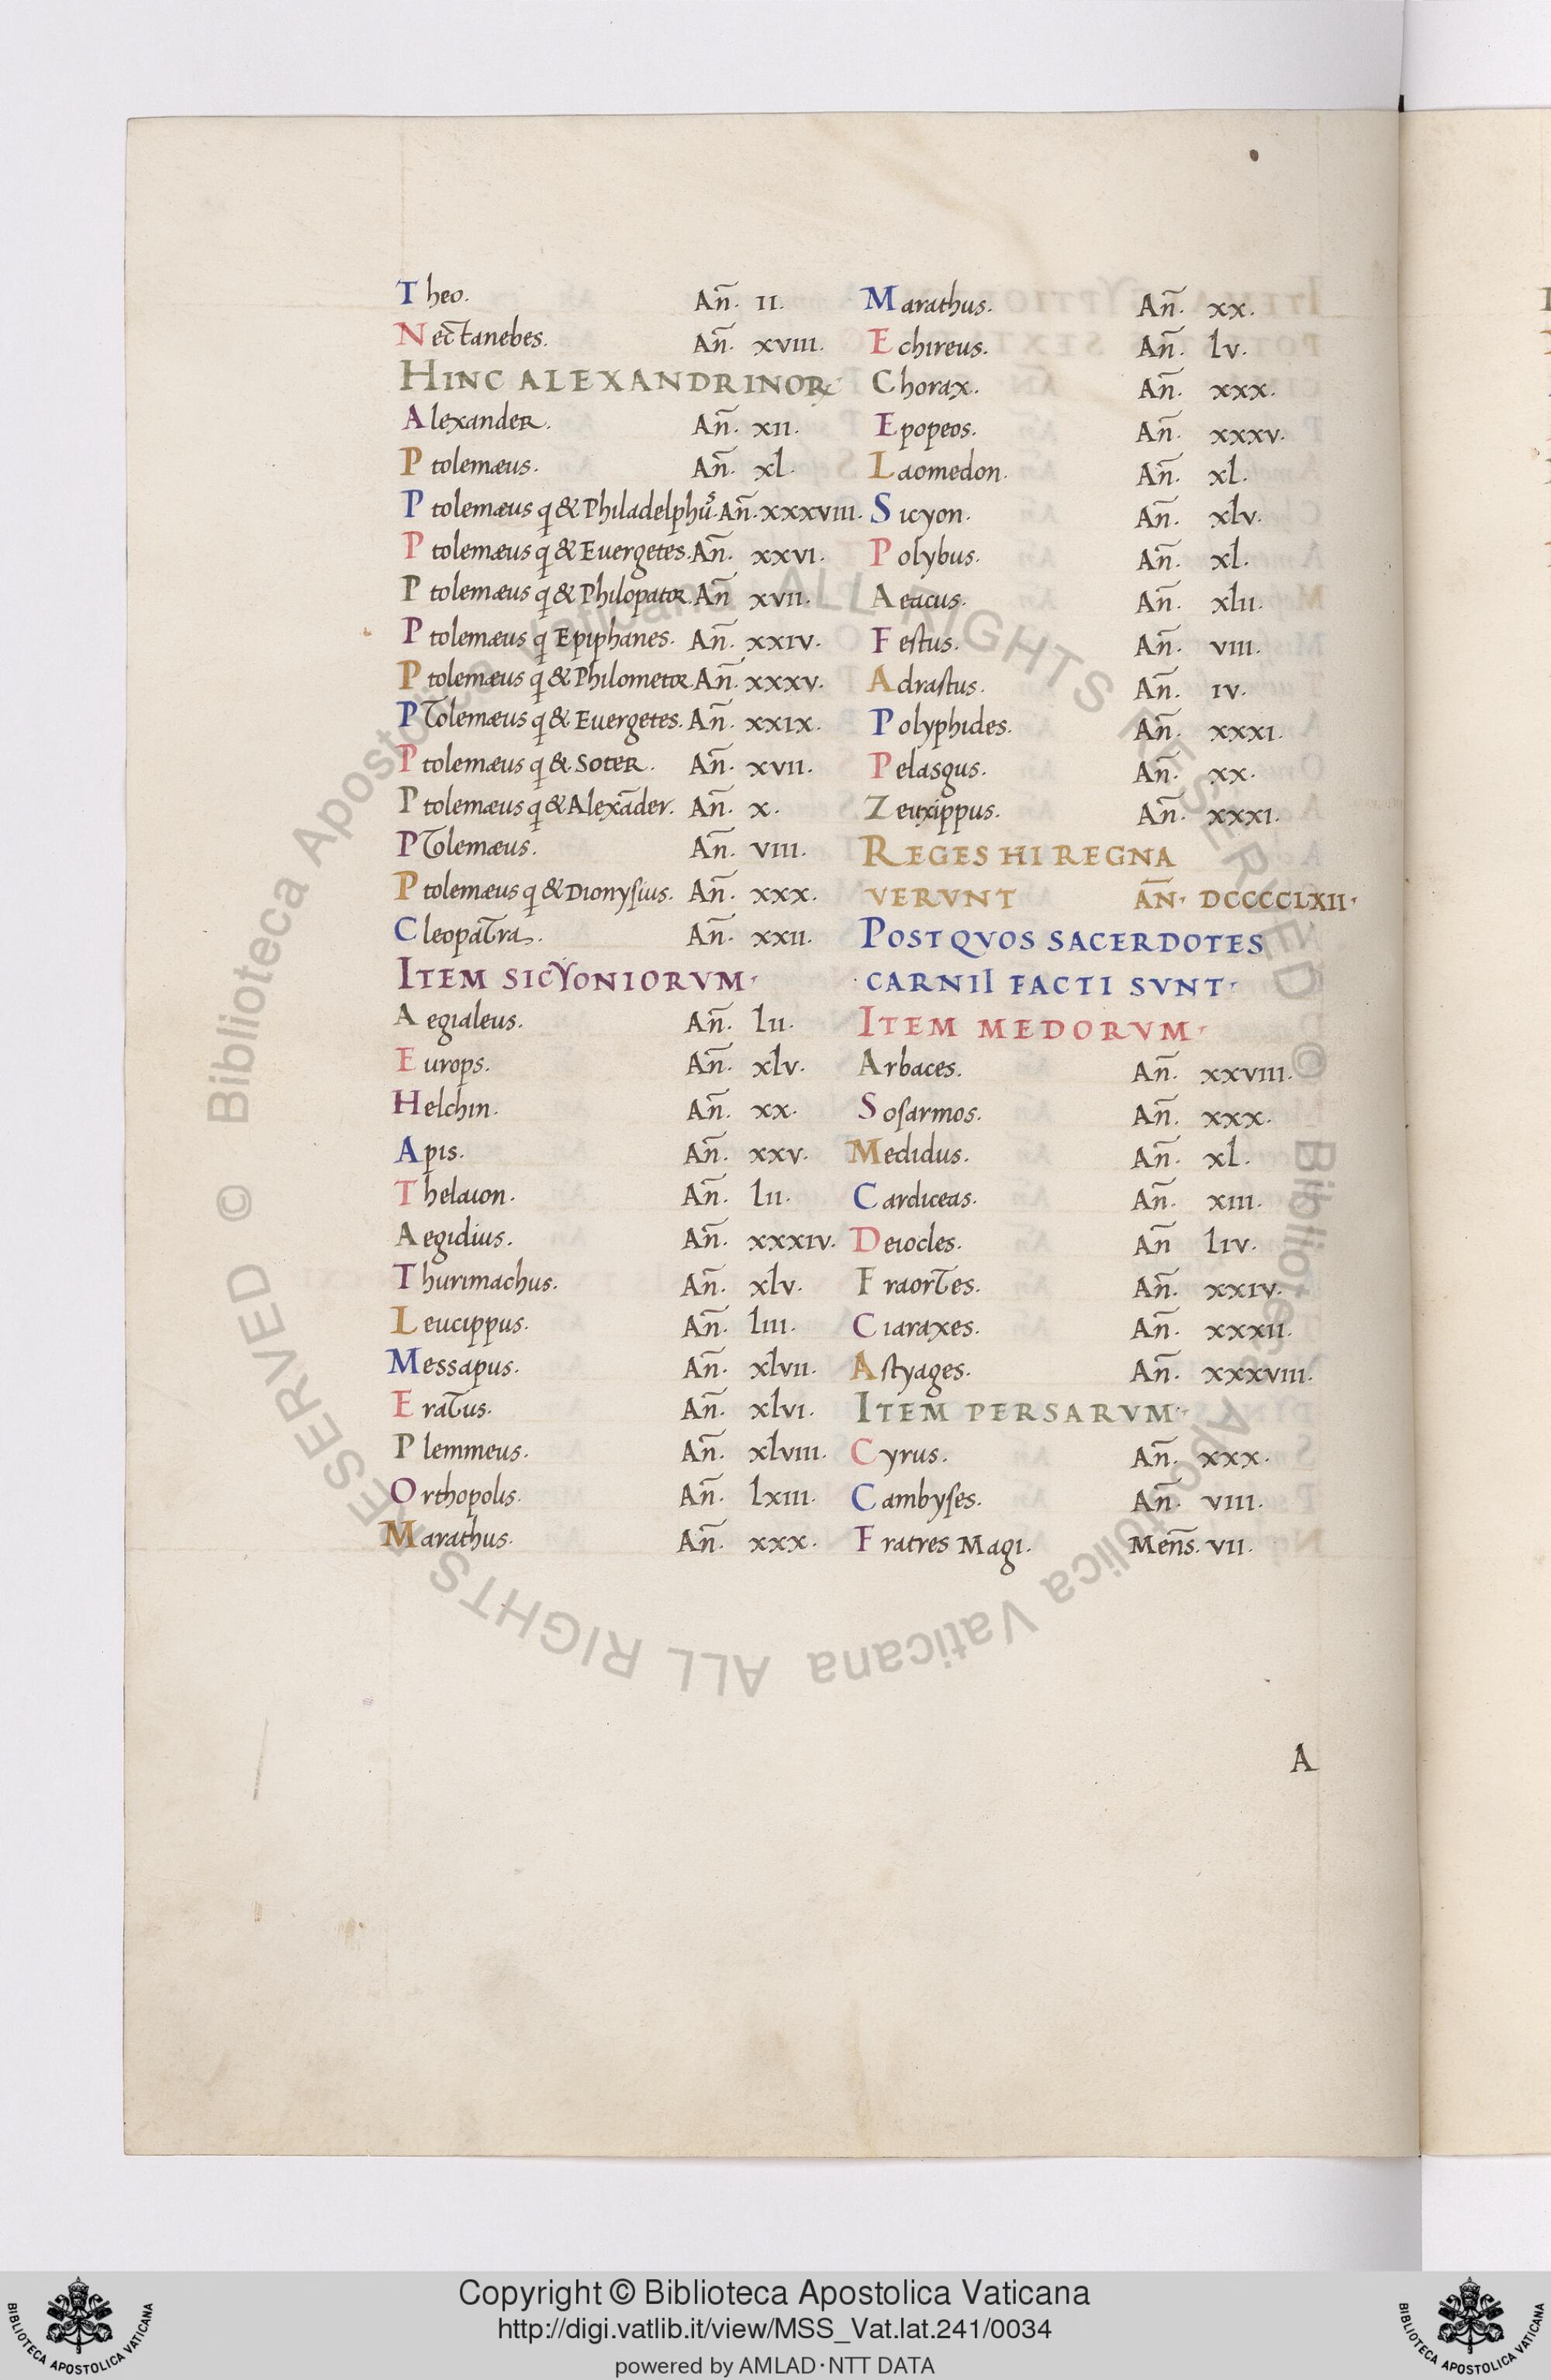 Theo. An̄. II.
Nectanebes. An̄. xvIII.
HINC ALEXANDRINOꝜ
Alexander. An̄. xII.
Ptolemæus. An̄. xl.
Ptolemæus q̣ & Philadelphūs. An̄. xxxvIII.
Ptolemæus q̣ & Euergetes. An̄. xxvI.
Ptolemæus q̣ & Philopator. An̄ xvII.
Ptolemæus q̣ Epiphanes. An̄. xxIv.
Ptolemæus q̣ & Philometor An̄. xxxv.
Ptolemæus q̣ & Euergetes. An̄. xxIx.
Ptolemæus q̣ & Soter. An̄. xvII.
Ptolemæus q̣ & Alexāder. An̄. x.
Ptolemæus. An̄. vIII.
Ptolemæus q̣ & Dionysius. An̄. xxx.
Cleopatra. An̄. xxII.
ITEM SICYONIORVM·
Aegialeus. An̄. lII.
Europs. An̄. xlv.
Helchin. An̄. xx.
Apis. An̄. xxv.
Thelaion. An̄. lII.
Aegidius. An̄. xxxIv.
Thurimachus. An̄. xlv.
Leucippus. An̄. lIII.
Messapus. An̄. xlvII.
Eratus. An̄. xlvI.
Plemmeus. An̄. xlvIII.
Orthopolis. An̄. lxIII.
Marathus. An̄. xxx.
Marathus. An̄. xx.
Echireus. An̄. lv.
Chorax. An̄. xxx.
Epopeos. An̄. xxxv.
Laomedon. An̄. xl.
Sicyon. An̄. xlv.
Polybus. An̄. xl.
Aeacus. An̄. xlII.
Festus. An̄. vIII.
Adrastus. An̄. Iv.
Polyphides. An̄. xxxI.
Pelasgus. An̄. xx.
Zeuxippus. An̄. xxxI.
REGES HI REGNA
VERVNT AN̄· DCCCCLXII·
POST QVOS SACERDOTES
·CARNII FACTI SVNT·
ITEM MEDORVM·
Arbaces. An̄. xxvIII.
Sosarmos. An̄. xxx.
Medidus. An̄. xl.
Cardiceas. An̄. xIII.
Deiocles. An̄ lIv.
Fraortes. An̄. xxIv.
Ciaraxes. An̄. xxxII.
Astyages. An̄. xxxvIII.
ITEM PERSARVM·
Cyrus. An̄. xxx.
Cambyses. An̄. vIII.
Fratres Magi. Men̄s. vII.
A
© Biblioteca Apostolica Vaticana ALL RIGHTS RESERVED © Biblioteca Apostolica Vaticana ALL RIGHTS RESERVED
BIBLIOTECA APOSTOLICA VATICANA
Copyright © Biblioteca Apostolica Vaticana
http://digi.vatlib.it/view/MSS_Vat.lat.241/0034
powered by AMLAD·NTT DATA
BIBLIOTECA APOSTOLICA VATICANA